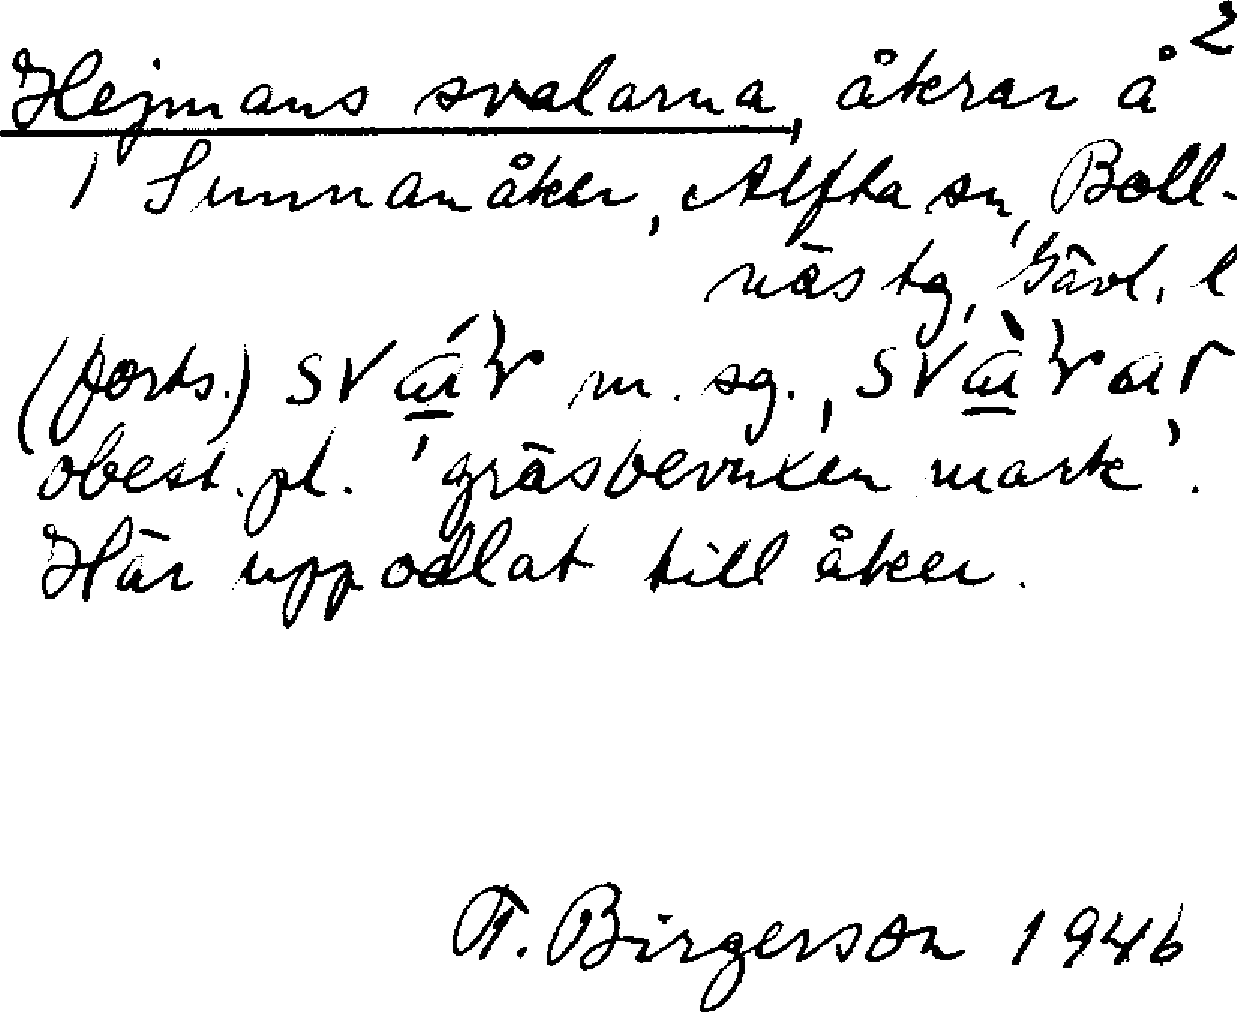 2
Hejmans svalarna, åkrar å
1 Sunnanåker, Alfta sn, Boll-
näs tg, Gävl. l
(forts.) m. sg.,
obest. pl. 'gräsbevuxen mark'.
Här uppodlat till åker.
T. Birgerson 1946